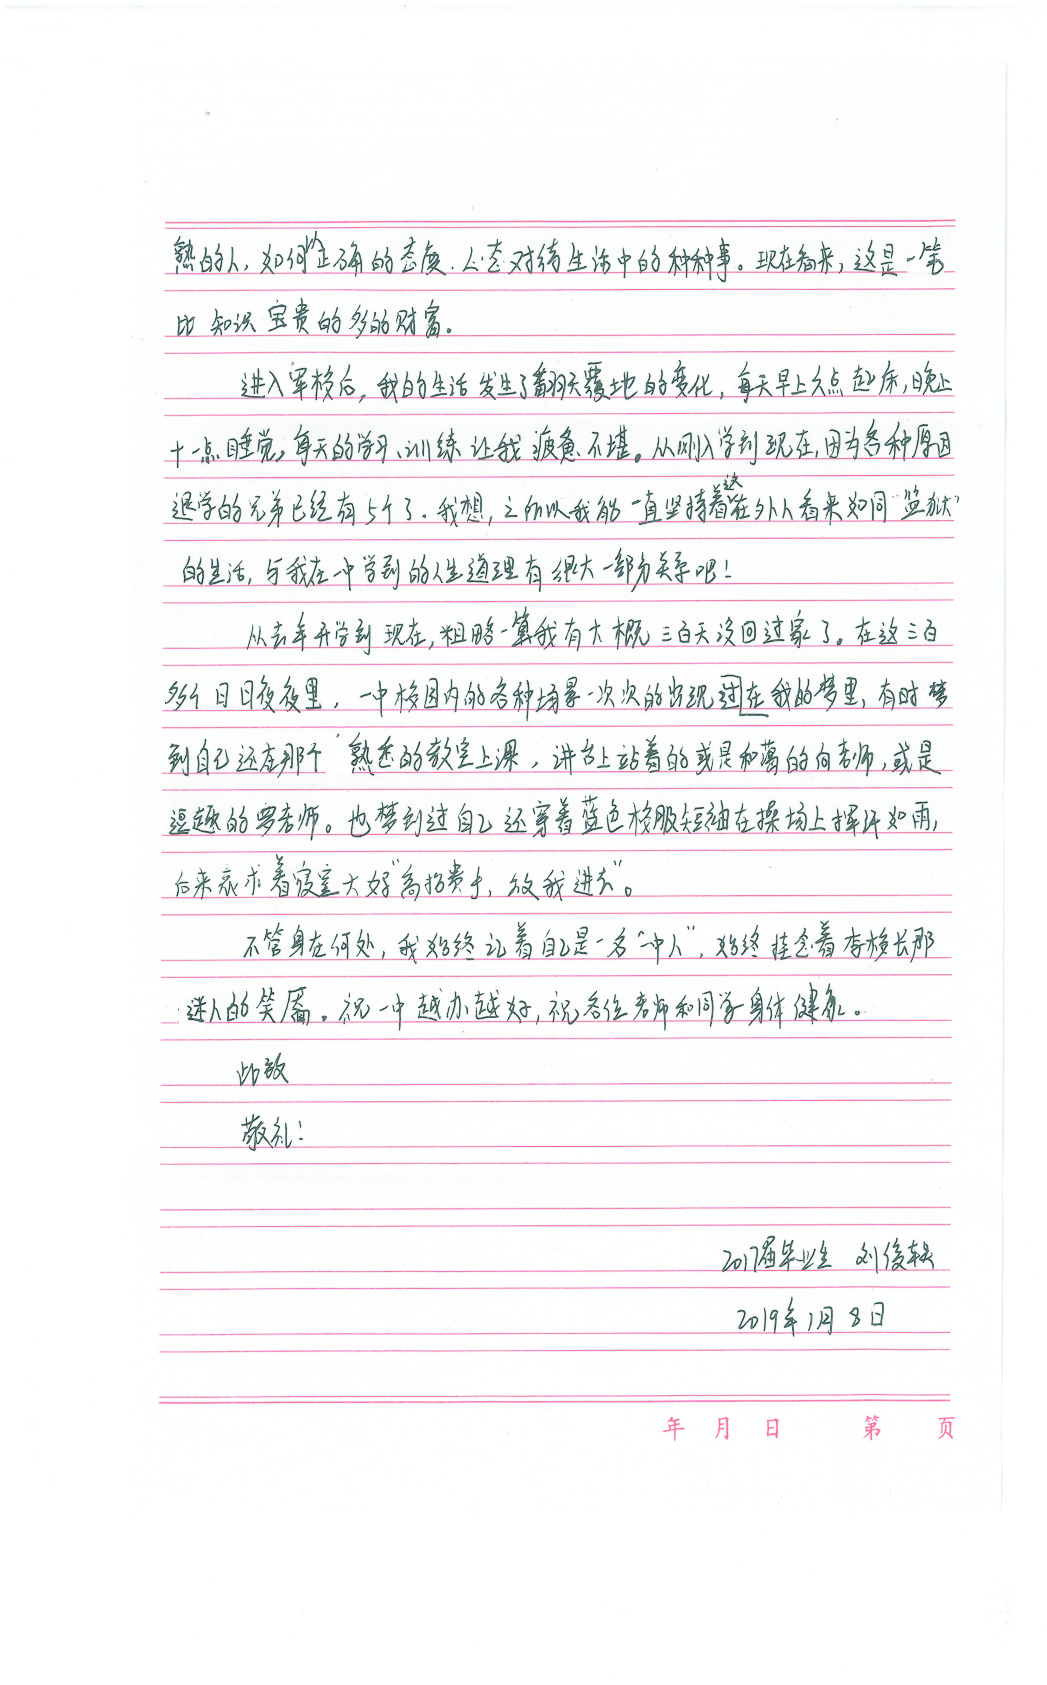 熟的人，如何以正确的态度、心态对待生活中的种种事。现在看来，这是一笔
比知识宝贵的多的财富。
进入军校后，我的生活发生了翻天覆地的变化，每天早上六点起床，晚上
十一点睡觉，每天的学习、训练让我疲惫不堪。从刚入学到现在，因为各种原因
退学的兄弟已经有5个了。我想，之所以我能一直坚持着这在外人看来如同"监狱"
的生活，与我在一中学到的人生道理有很大一部分关系吧！
从去年开学到现在，粗略一算我有大概三百天没回过家了。在这三百
多个日日夜夜里，一中校园内的各种场景一次次的出现过在我的梦里，有时梦
到自己还在那个熟悉的教室上课，讲台上站着的或是和蔼的向老师，或是
逗趣的罗老师。也梦到过自己还穿着蓝色校服短袖在操场上挥汗如雨，
后来哀求着寝室大妈"高抬贵手，放我进去"。
不管身在何处，我始终记着自己是一名"一中人"，始终挂念着李校长那
迷人的笑靥。祝一中越办越好，祝各位老师和同学身体健康。
此致
敬礼！
2017届毕业生 刘俊轶
2019年1月8日
年 月 日 第 页